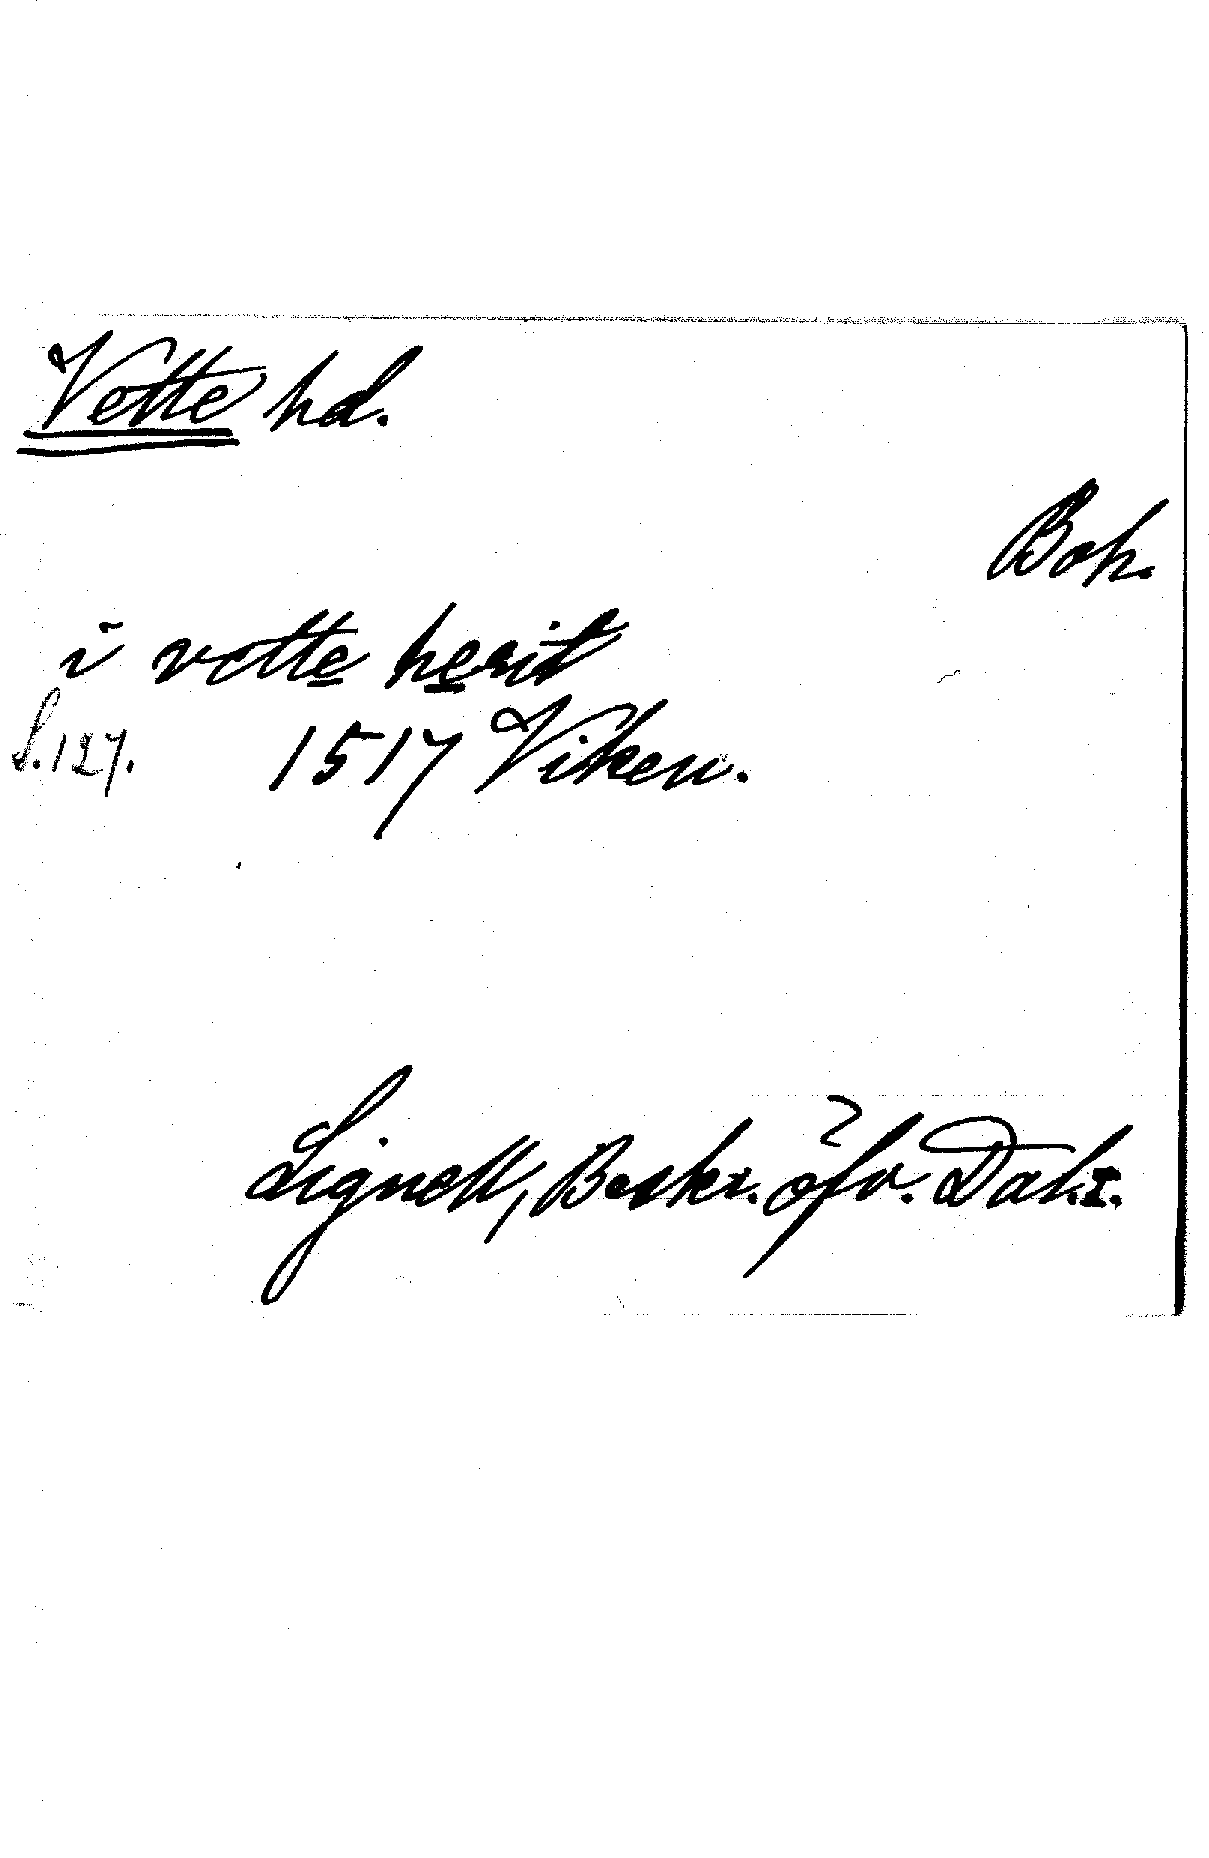 Vette hd.
Boh.
i votte herit
S. 127. 1517 Viken.
Lignell, Beskr. öfv. Dal. I.